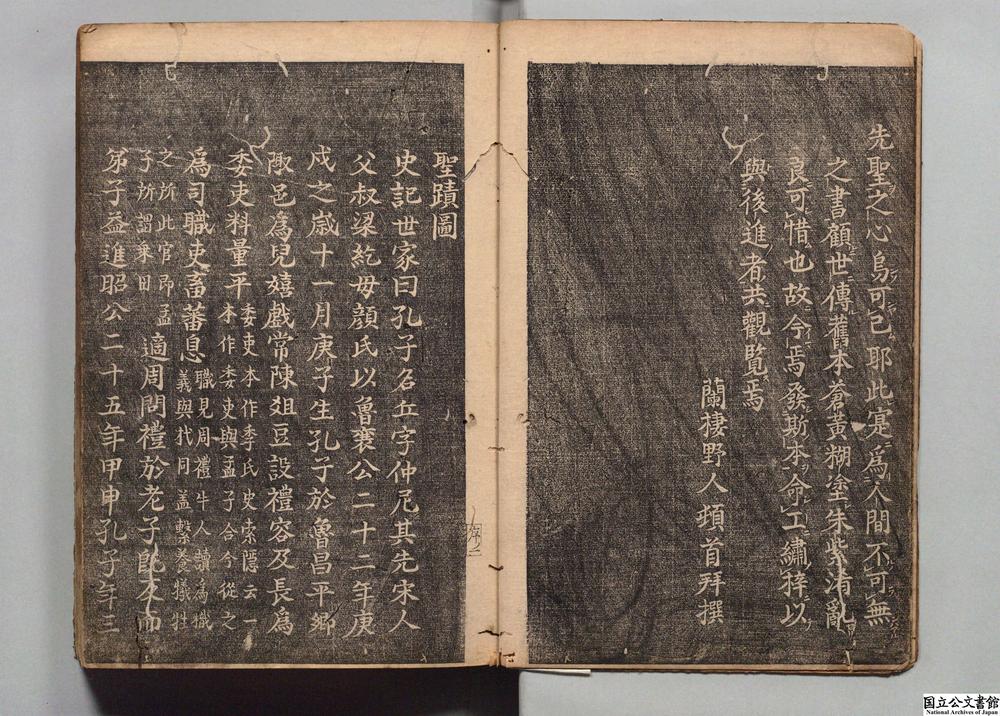 先聖之心烏可已耶此寔爲人間不可無
之書顧世傳舊本蒼黄糊塗朱紫淆亂
良可惜也故今焉發斯本命工繡梓以
與後進者共觀覽焉
蘭棲野人頓首拜撰
聖蹟圖
史記世家曰孔子名丘字仲尼其先宋人
父叔梁紇母顔氏以魯襄公二十二年庚
戌之歳十一月庚子生孔子於魯昌平郷
陬邑爲兒嬉戲常陳爼豆設禮容及長爲
委吏料量平委吏本作季氏史索隱云一
本作委吏與孟子合今從之
爲司職吏畜蕃息職見周禮牛人讀爲樴
義與杙同盖繋養犧牲
之所此官即孟
子所謂乗田
適周問禮於老子既反而
弟子益進昭公二十五年甲申孔子年三
国立公文書館
National Archives of Japan